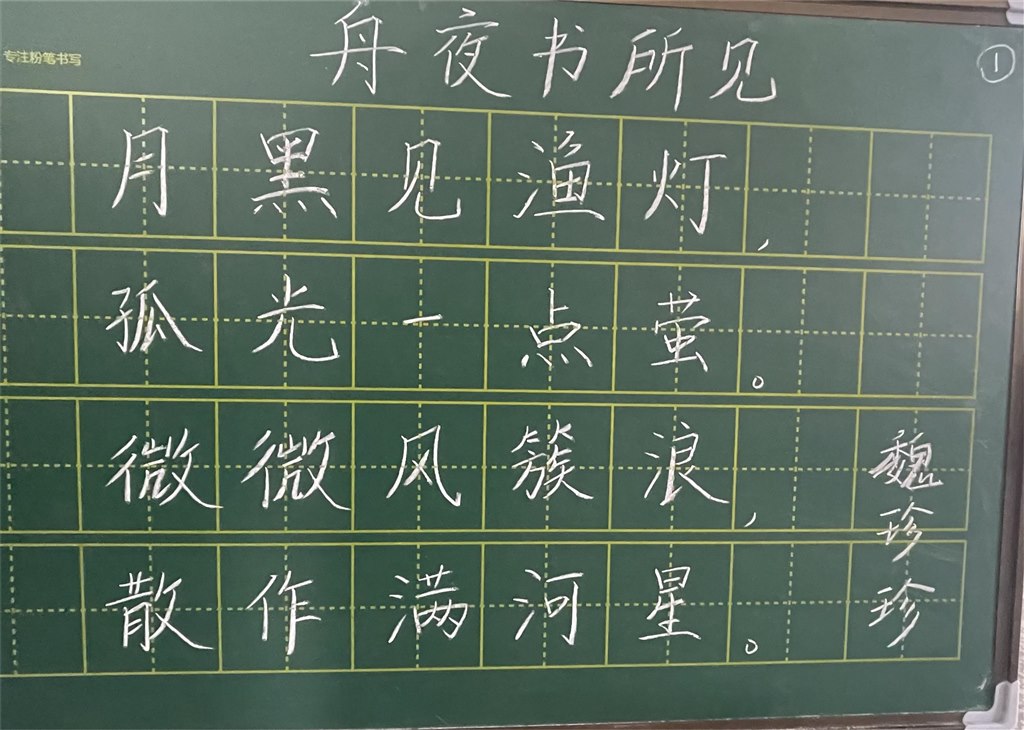 专注粉笔书写
舟夜书所见
①
月黑见渔灯,
孤光一点萤。
微微风簇浪,
散作满河星。
魏珍珍